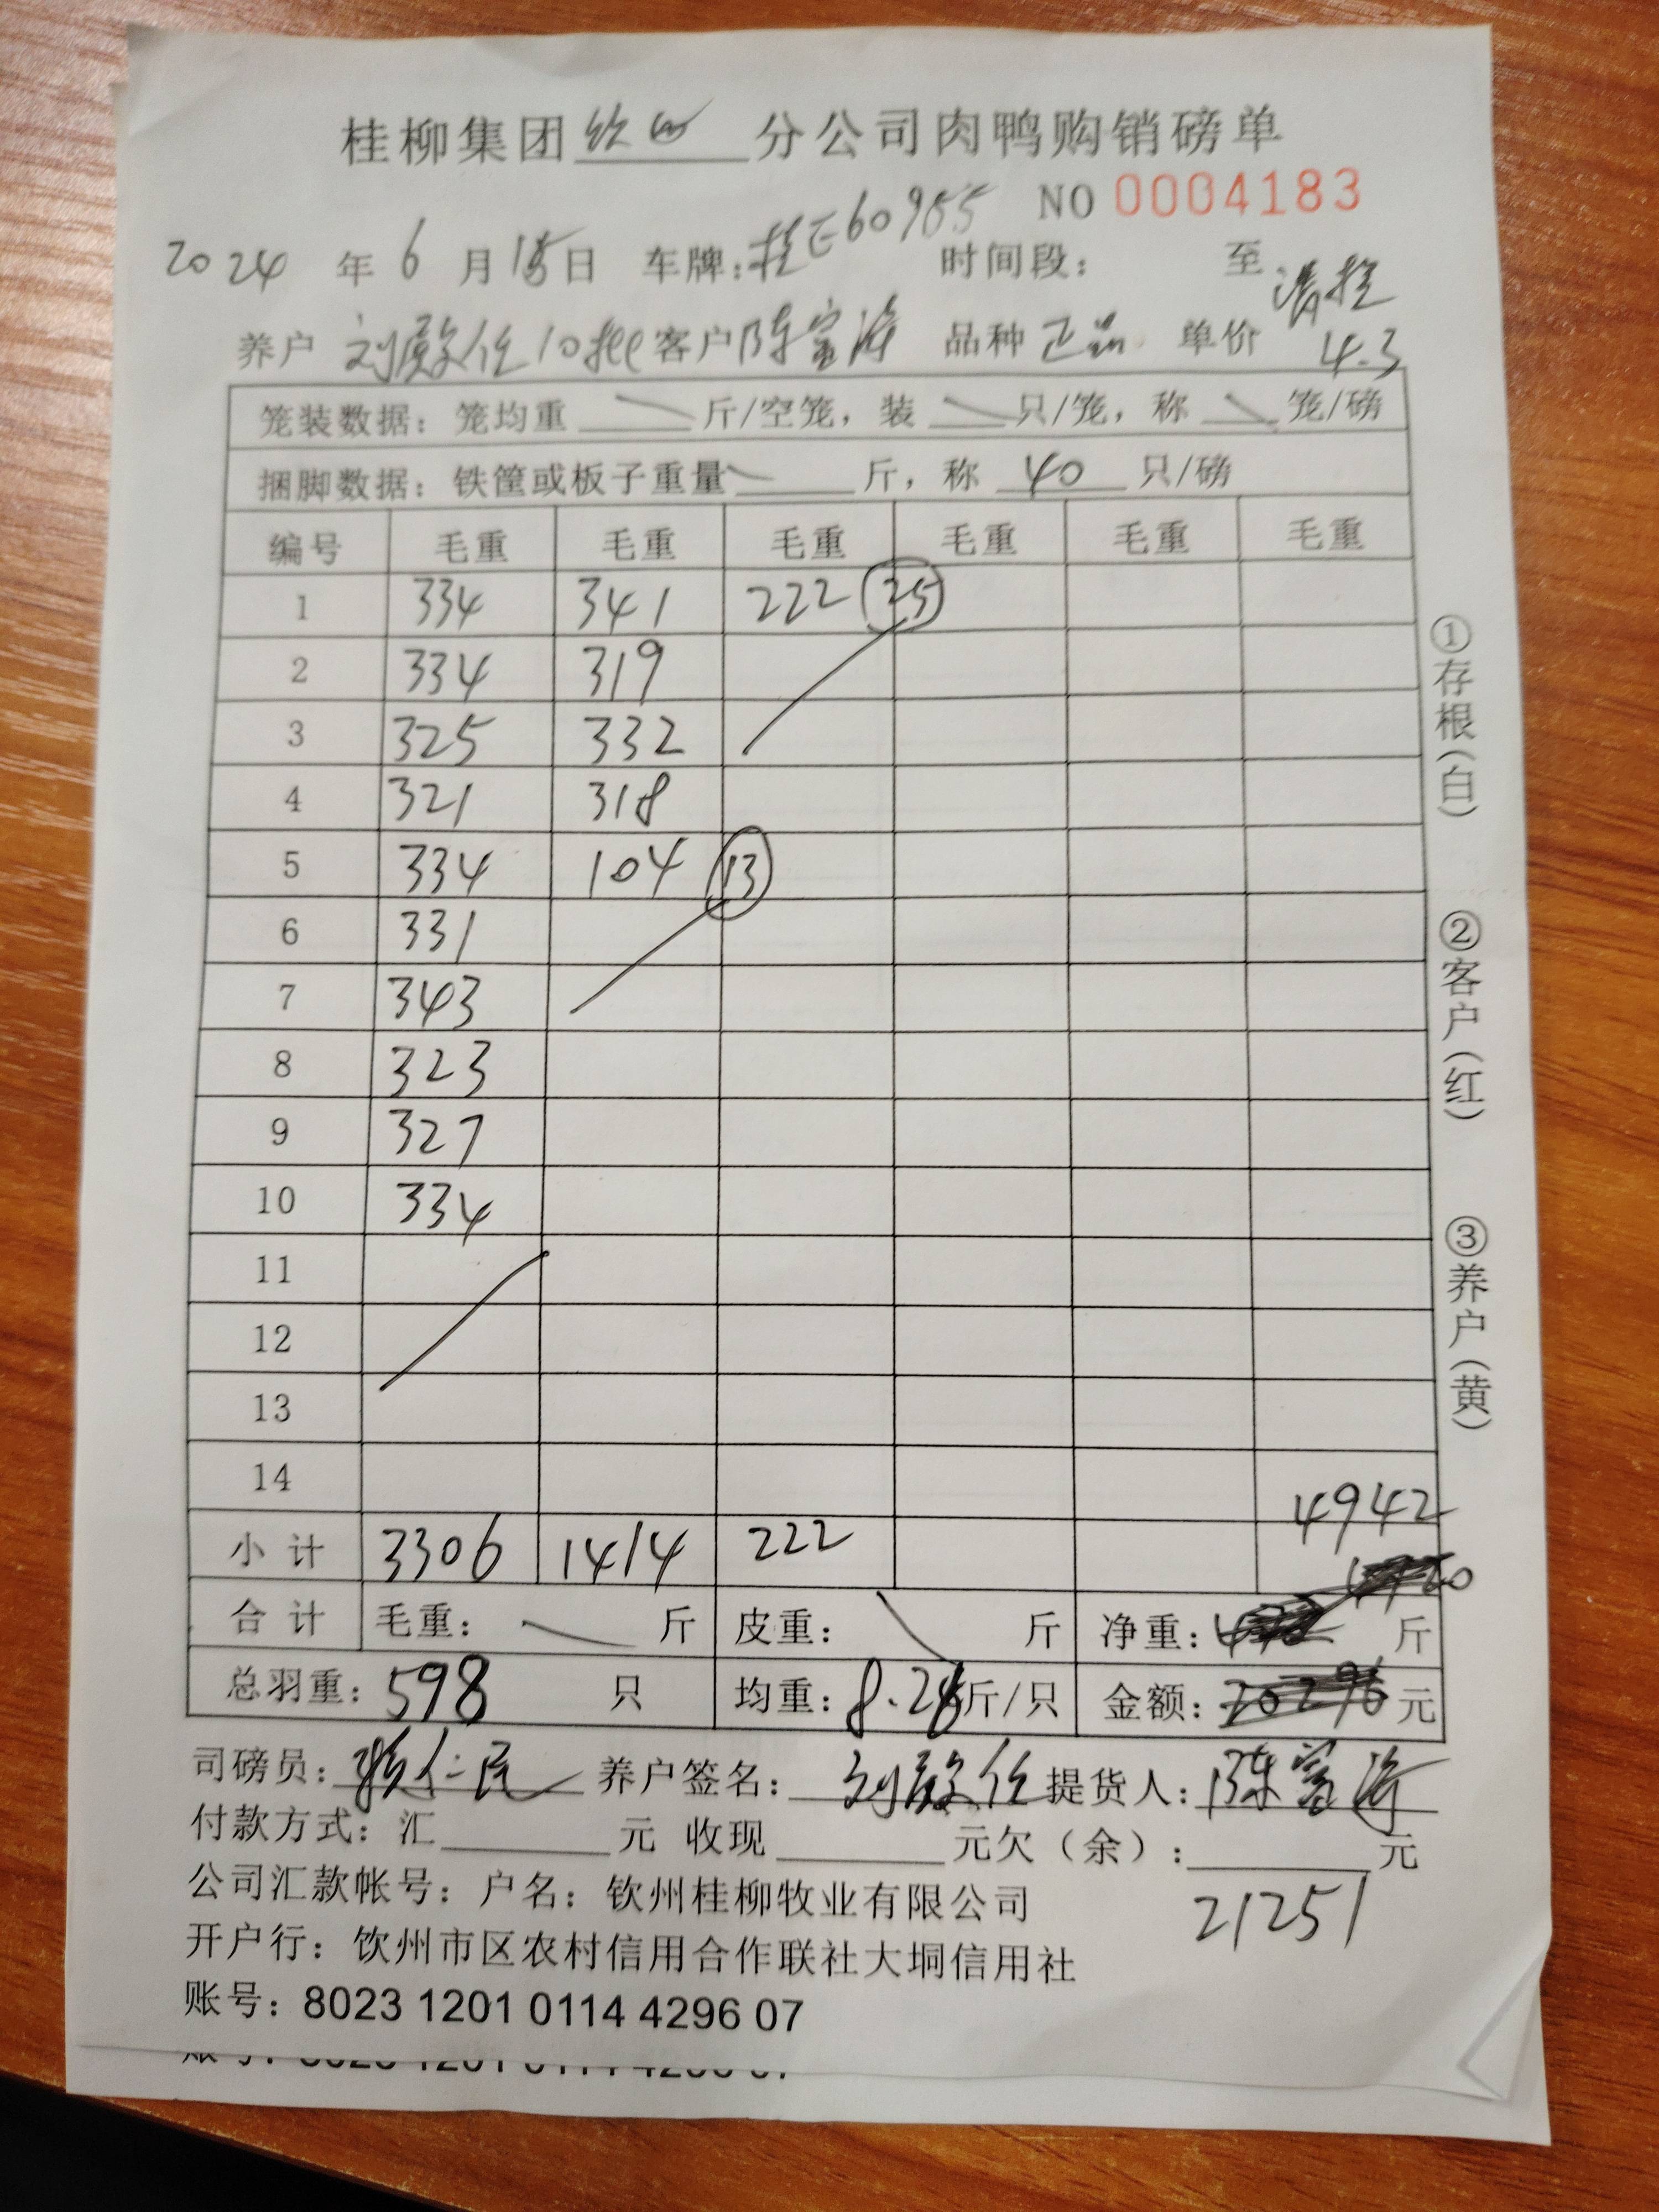 桂柳集团 钦州 分公司肉鸭购销磅单
NO 0004183
2024 年 6 月 15 日 车牌: 桂E60955 时间段: 至
养户 刘 10批 客户 陈富海 品种 正品 单价 4.3
笼装数据: 笼均重 斤/空笼, 装 只/笼, 称 笼/磅
捆脚数据: 铁筐或板子重量 斤, 称 40 只/磅
编号 毛重 毛重 毛重 毛重 毛重 毛重
1 334 341 222 25
2 334 319
3 325 332
4 321 318
5 334 104 13
6 331
7 343
8 323
9 327
10 334
11
12
13
14
4942
小计 3306 1414 222
合计 毛重: 斤 皮重: 斤 净重: 斤
总羽重: 598 只 均重: 8.26 斤/只 金额: 20296 元
司磅员: 仁民 养户签名: 刘 提货人: 陈富海
付款方式: 汇 元 收现 元欠(余): 元
21251
公司汇款帐号: 户名: 钦州桂柳牧业有限公司
开户行: 饮州市区农村信用合作联社大垌信用社
账号: 8023 1201 0114 4296 07
①存根(白)
②客户(红)
③养户(黄)